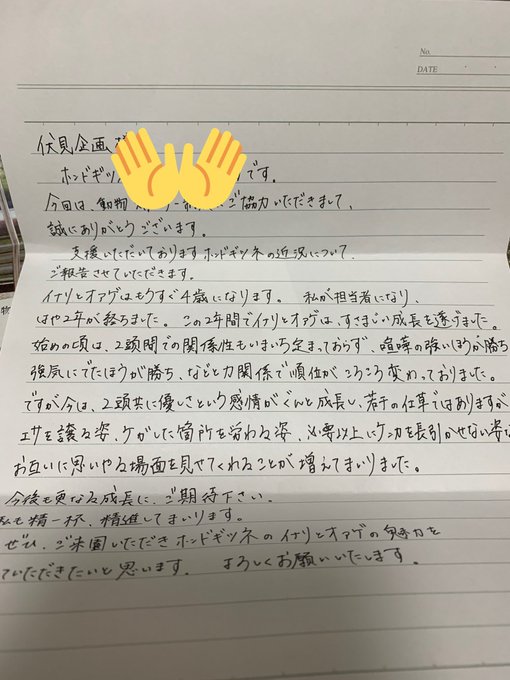 No.
DATE
伏見企画
ホンドギツ です。
今回は、動物 ご協力いただきまして、
誠にありがとうございます。
支援いただいておりますホンドギツネの近況について、
ご報告させていただきます。
イナリとオアゲはもうすぐ4歳になります。 私が担当者になり、
はや2年が経ちました。この2年間でイナリとオアゲは、すさまじい成長を遂げました。
始めの頃は、2頭間での関係性もいまいち定まっておらず、喧嘩の強いほうが勝ち
強気にでたほうが勝ち、などと力関係で順位がころころ変わっておりました。
ですが今は、2頭共に優しさという感情がぐんと成長し、若干の仕草ではありますが
エサを譲る姿、ケガした箇所を労わる姿、必要以上にケンカを長引かせない姿な
お互いに思いやる場面を見せてくれることが増えてまいりました。
今後も更なる成長に、ご期待下さい。
私も精一杯、精進してまいります。
ぜひ、ご来園いただきホンドギツネのイナリとオアゲの魅力を
ていただきたいと思います。 よろしくお願いいたします。
物